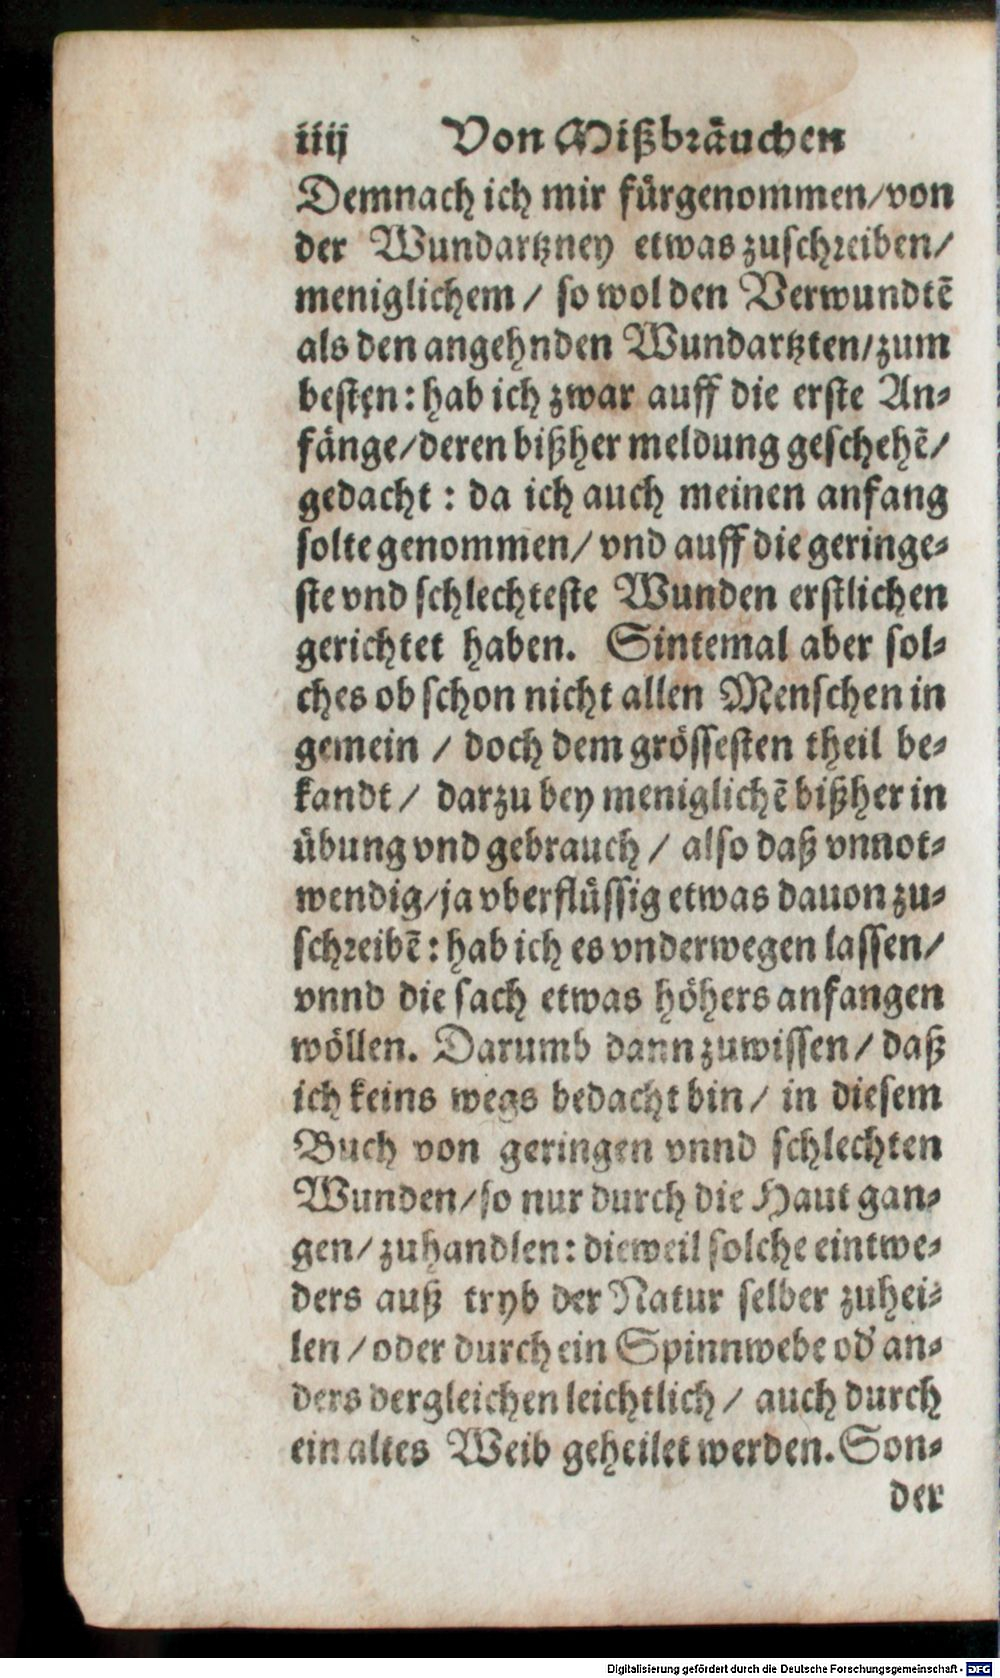 iiij Von Mißbräuchen
Demnach ich mir fürgenommen/von
der Wundartzney etwas zuschreiben/
meniglichem / so wol den Verwundtẽ
als den angehnden Wundartzten/zum
besten: hab ich zwar auff die erste An-
fänge/deren bißher meldung geschehẽ/
gedacht: da ich auch meinen anfang
solte genommen/ vnd auff die geringe-
ste vnd schlechteste Wunden erstlichen
gerichtet haben. Sintemal aber sol-
ches ob schon nicht allen Menschen in
gemein / doch dem grössesten theil be-
kandt / darzu bey meniglichẽ bißher in
übung vnd gebrauch / also daß vnnot-
wendig/ja vberflüssig etwas dauon zu-
schreibẽ: hab ich es vnderwegen lassen/
vnnd die sach etwas höhers anfangen
wöllen. Darumb dann zuwissen/ daß
ich keins wegs bedacht bin/ in diesem
Buch von geringen vnnd schlechten
Wunden/so nur durch die Haut gan-
gen/ zuhandlen: dieweil solche eintwe-
ders auß tryb der Natur selber zuhei-
len / oder durch ein Spinnwebe od' an-
ders dergleichen leichtlich / auch durch
ein altes Weib geheilet werden. Son-
der
Digitalisierung gefördert durch die Deutsche Forschungsgemeinschaft - DFG